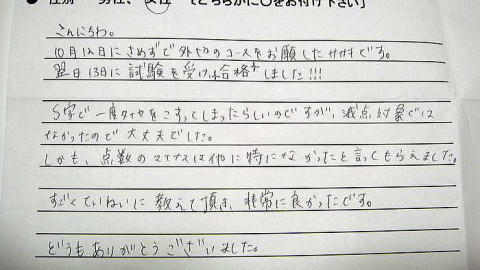 ● 性別 男性、女性 【どちらかに○をお付け下さい】
こんにちわ。
10月12日にさめずで外のコースをお願したササキです。
翌日13日に試験を受け、合格しました!!!
S字で一度タイヤをこすってしまったらしいのですが、減点対象では
なかったので大丈夫でした。
しかも、点数のマイナスは他に特になかったと言ってもらえました。
すごくていねいに教えて頂き、非常に良かったです。
どうもありがとうございました。